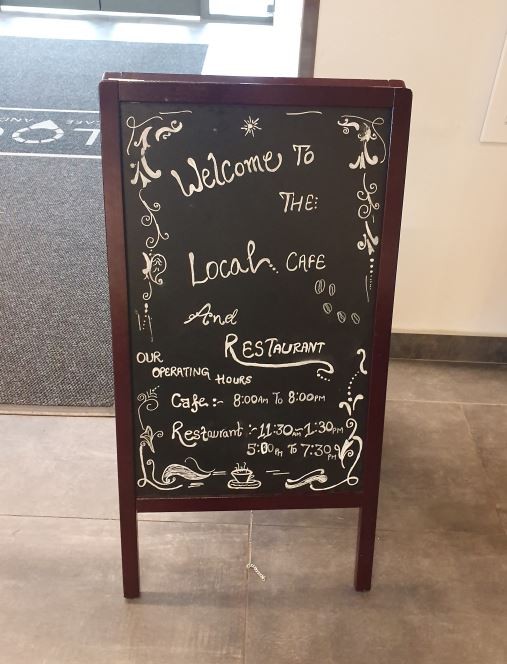 Welcome To
THE:
Local CAFE
And
RESTAURANT
OUR
OPERATING HOURS
Cafe:- 8:00AM To 8:00PM
Restaurant:- 11:30AM-1:30PM
5:00PM To 7:30PM